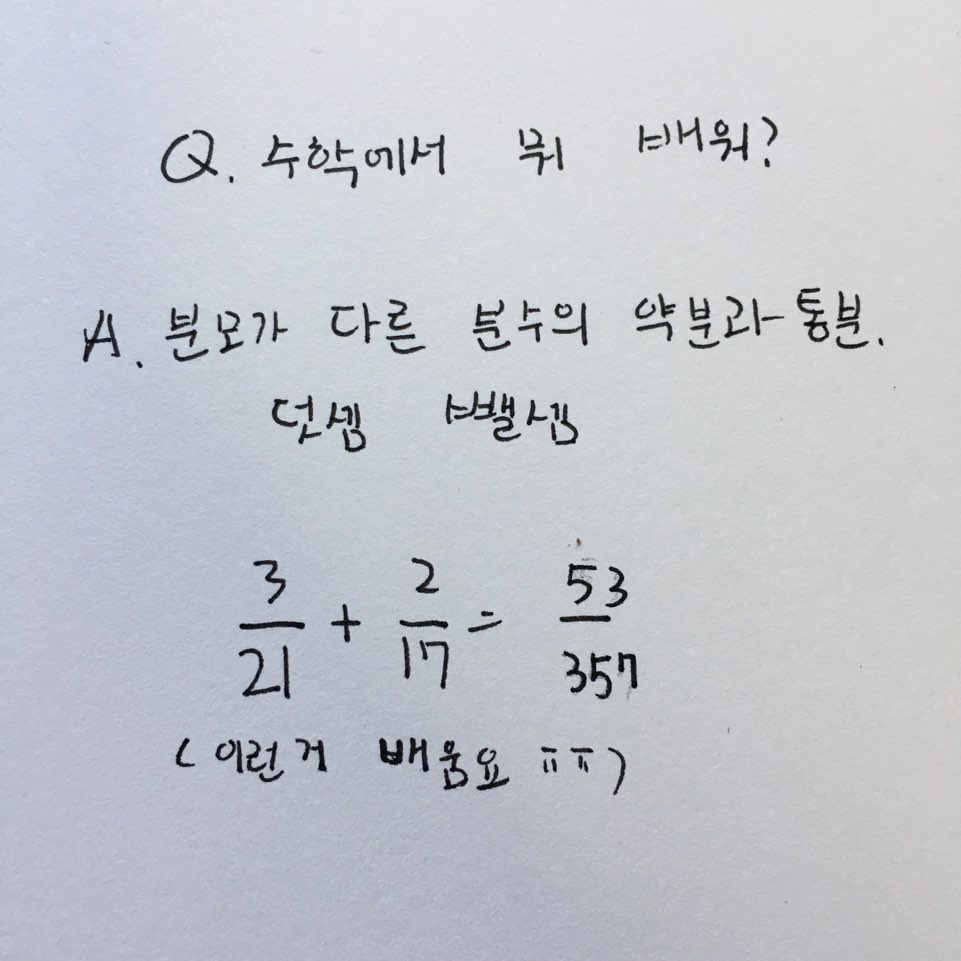 Q. 수학에서 뭐 배워?
A. 분모가 다른 분수의 약분과 통분.
덧셈 뺄셈
3/21 + 2/17 = 53/357
(이런거 배움요 ㅠㅠ)